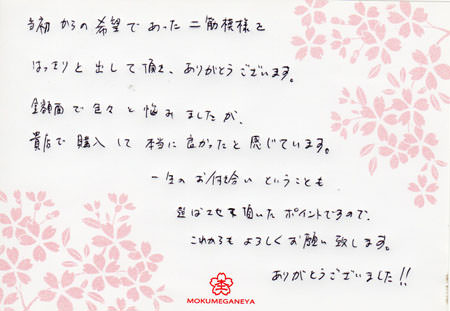 当初からの希望であった二筋模様を
はっきりと出して頂き、ありがとうございます。
金額面で色々と悩みましたが、
貴店で購入して本当に良かったと感じています。
一生のお付き合いということも
選ばせて頂いたポイントですので、
これからもよろしくお願い致します。
ありがとうございました!!
MOKUMEGANEYA